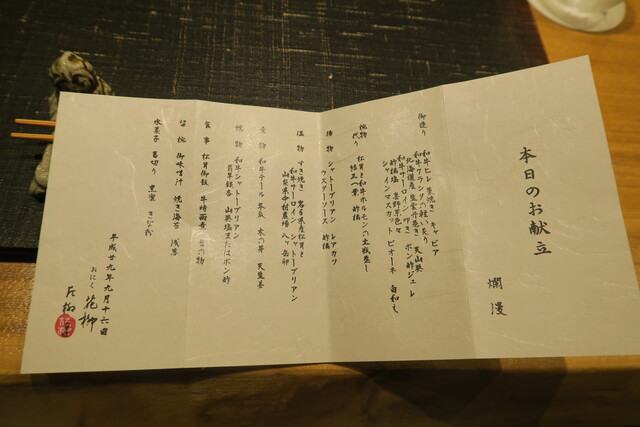 本日のお献立
爛漫
御造り 和牛ヒレ 藁焼き キャビア
和牛クラシタの軽い炙り 天山葵
北海道産 塩雲丹巻き ポン酢ジュレ
和牛サーロイン叩き
酢橘塩
シャインマスカット ピオーネ 白和え
椀物代り 松茸と和牛ホルモンの土瓶蒸し
結三つ葉 酢橘
揚物 シャトーブリアン レアカツ
ウスターソース 酢橘
温物 すき焼き
和牛サーロイン シャトーブリアン
山梨県中村農場 八ヶ岳卵
煮物 和牛テール 冬瓜 木の芽
焼物 和牛シャトーブリアン
山葵塩またはポン酢
食事 松茸御飯 牛時雨煮 香の物
留椀 御味噌汁 焼き海苔 浅葱
水菓子 葛切り 黒蜜 きな粉
平成廿九年九月十六日
おにく 花柳